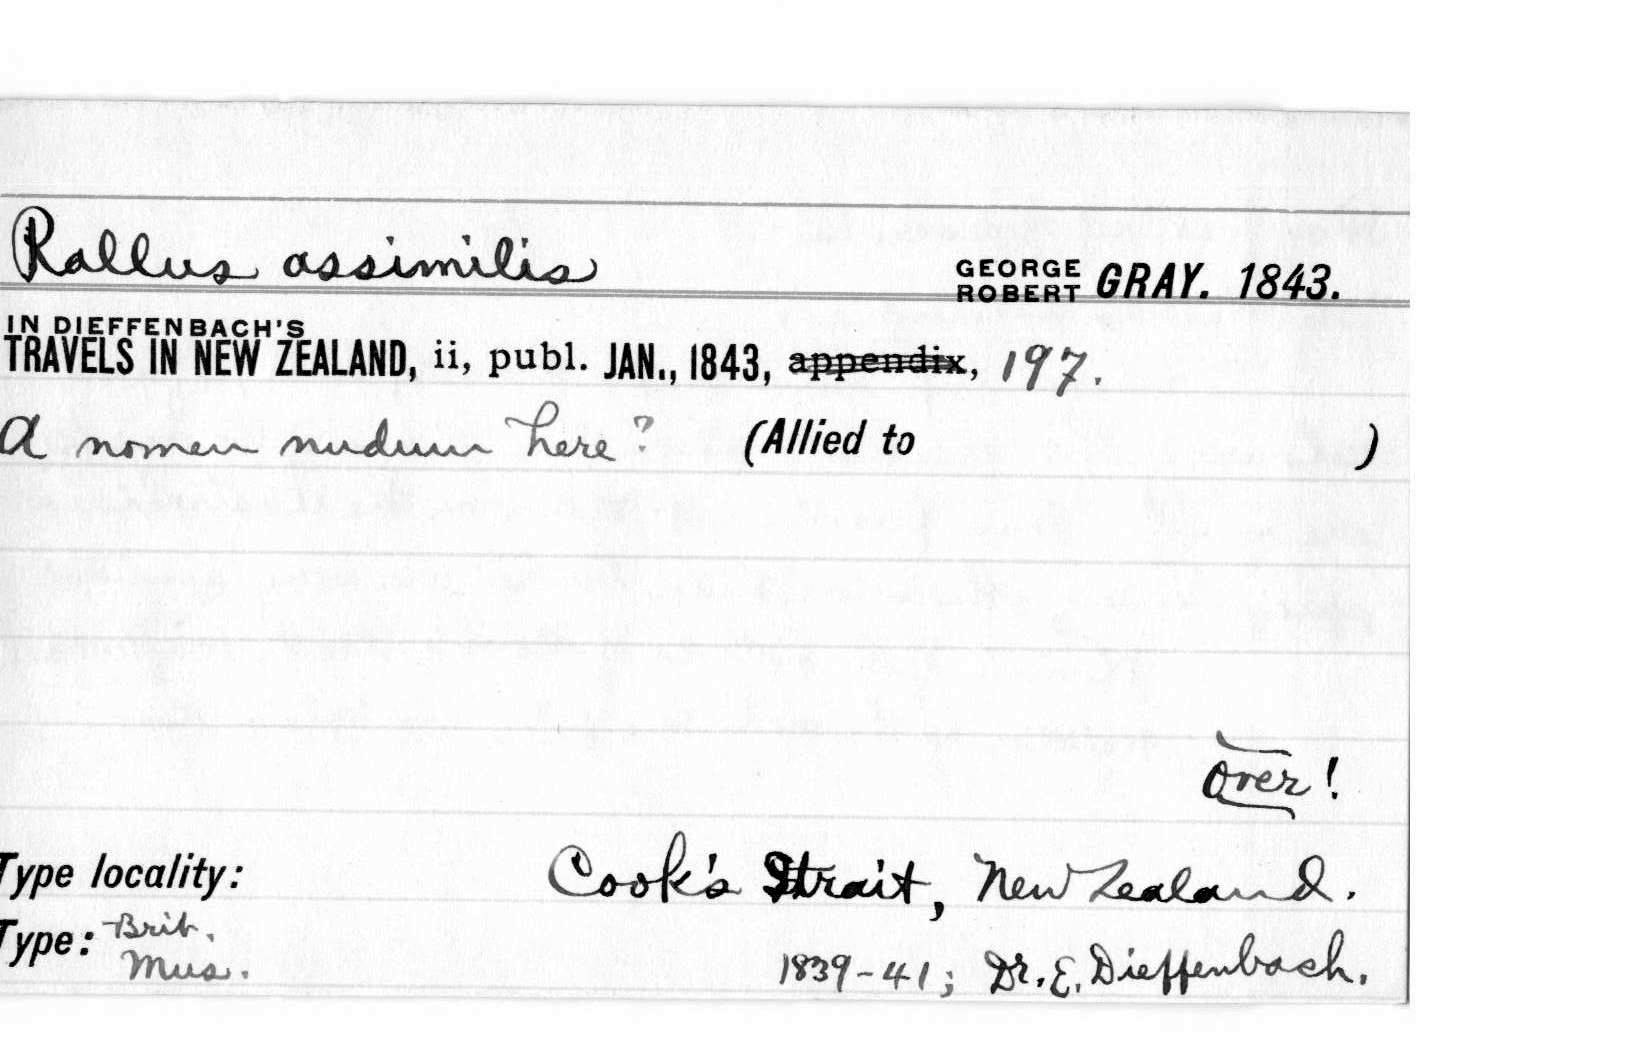 Rallus assimilis GEORGE ROBERT GRAY. 1843.
IN DIEFFENBACH'S
TRAVELS IN NEW ZEALAND, ii, publ. JAN., 1843, appendix, 197.
A nomen nudum here? (Allied to )
Over!
Type locality: Cook's Strait, New Zealand.
Type: Brit. Mus. 1839-41; Dr. E. Dieffenbach.